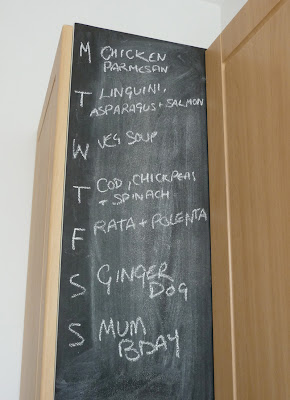 M CHICKEN
PARMESAN
T LINGUINI,
ASPARAGUS + SALMON
W VEG SOUP
T COD, CHICKPEAS
+ SPINACH
F RATA + POLENTA
S GINGER
DOG
S MUM
BDAY